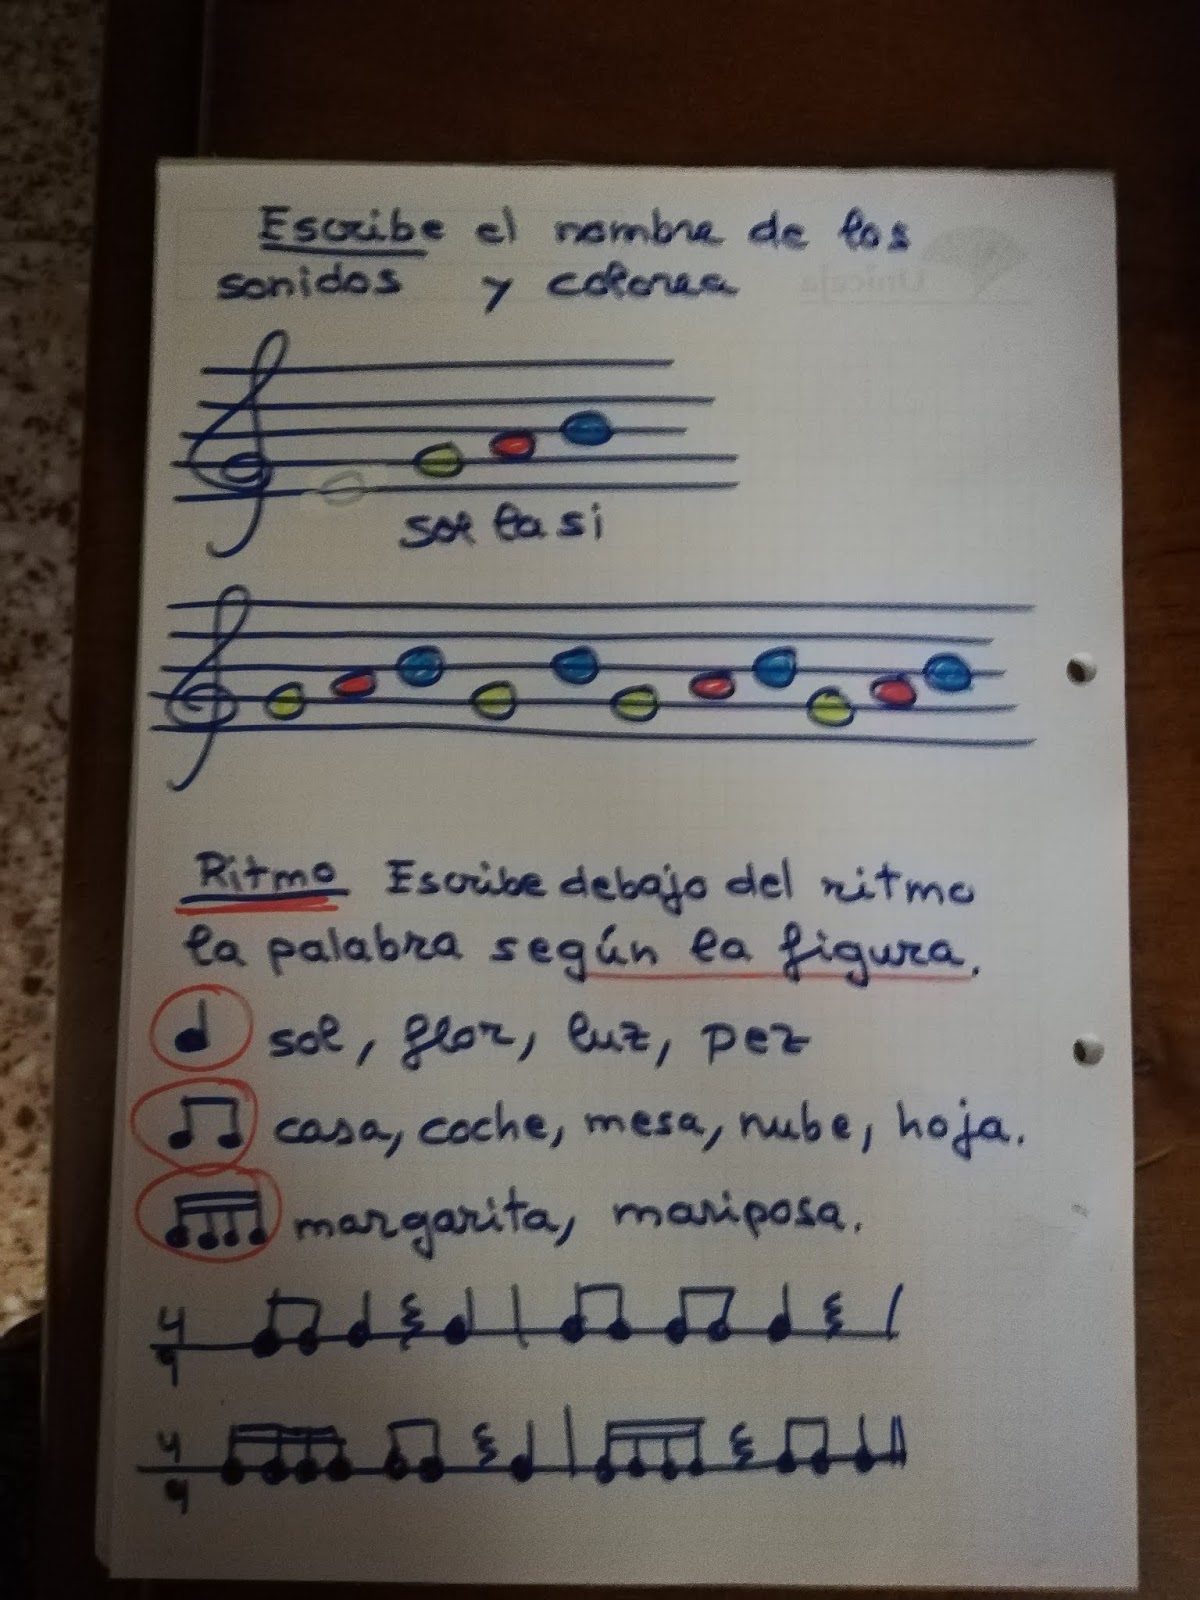 Escribe el nombre de los
sonidos y colorea
sol la si
Ritmo Escribe debajo del ritmo
la palabra según la figura.
sol, flor, luz, pez
casa, coche, mesa, nube, hoja.
margarita, mariposa.
4
4
4
4